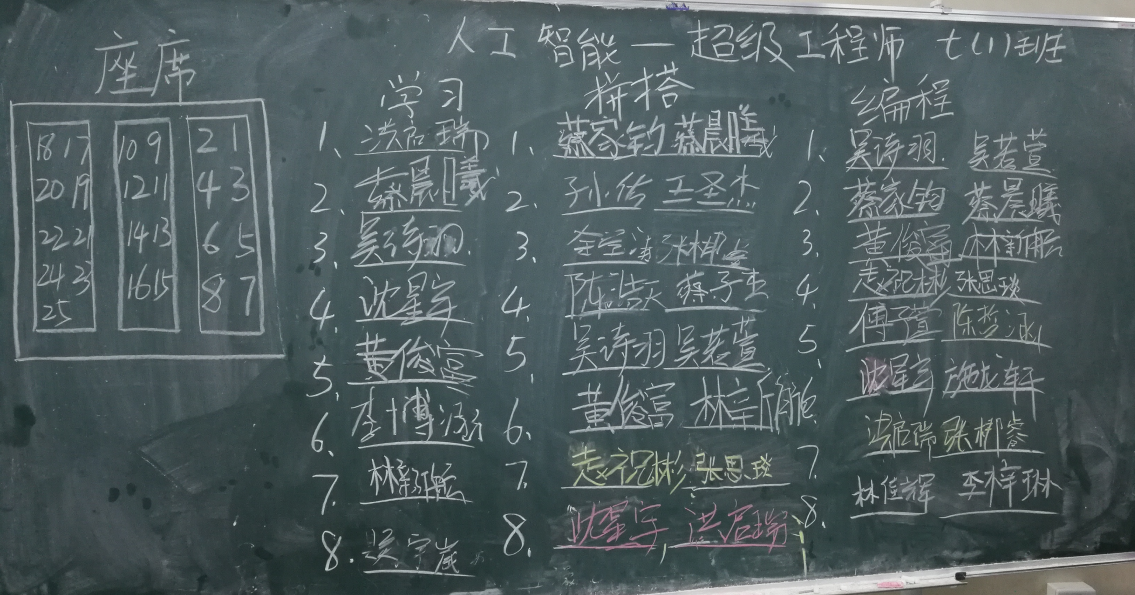 人工智能—超级工程师 七(1)班
座席
18 17 10 9 2 1
20 19 12 11 4 3
22 21 14 13 6 5
24 23 16 15 8 7
25
学习
1、洪启瑞
2、蔡晨曦
3、吴诗羽
4、沈星宇
5、黄俊富
6、李博涵
7、林新航
8.吴宇岚
拼搭
1、蔡家钧 蔡晨曦
2、孙小传 王圣杰
3、
4、陈浩天 蔡子杰
5、吴诗羽 吴若萱
6、黄俊富 林新航
7、赵祝彬 张思琰
8、沈星宇,洪启瑞
编程
1、吴诗羽 吴若萱
2、蔡家钧 蔡晨曦
3、黄俊富 林新航
4、赵祝彬 张思琰
5、傅子萱 陈哲涵
沈星宇 施龙轩
7、洪启瑞 张郴睿
8、林佳辉 李梓琳